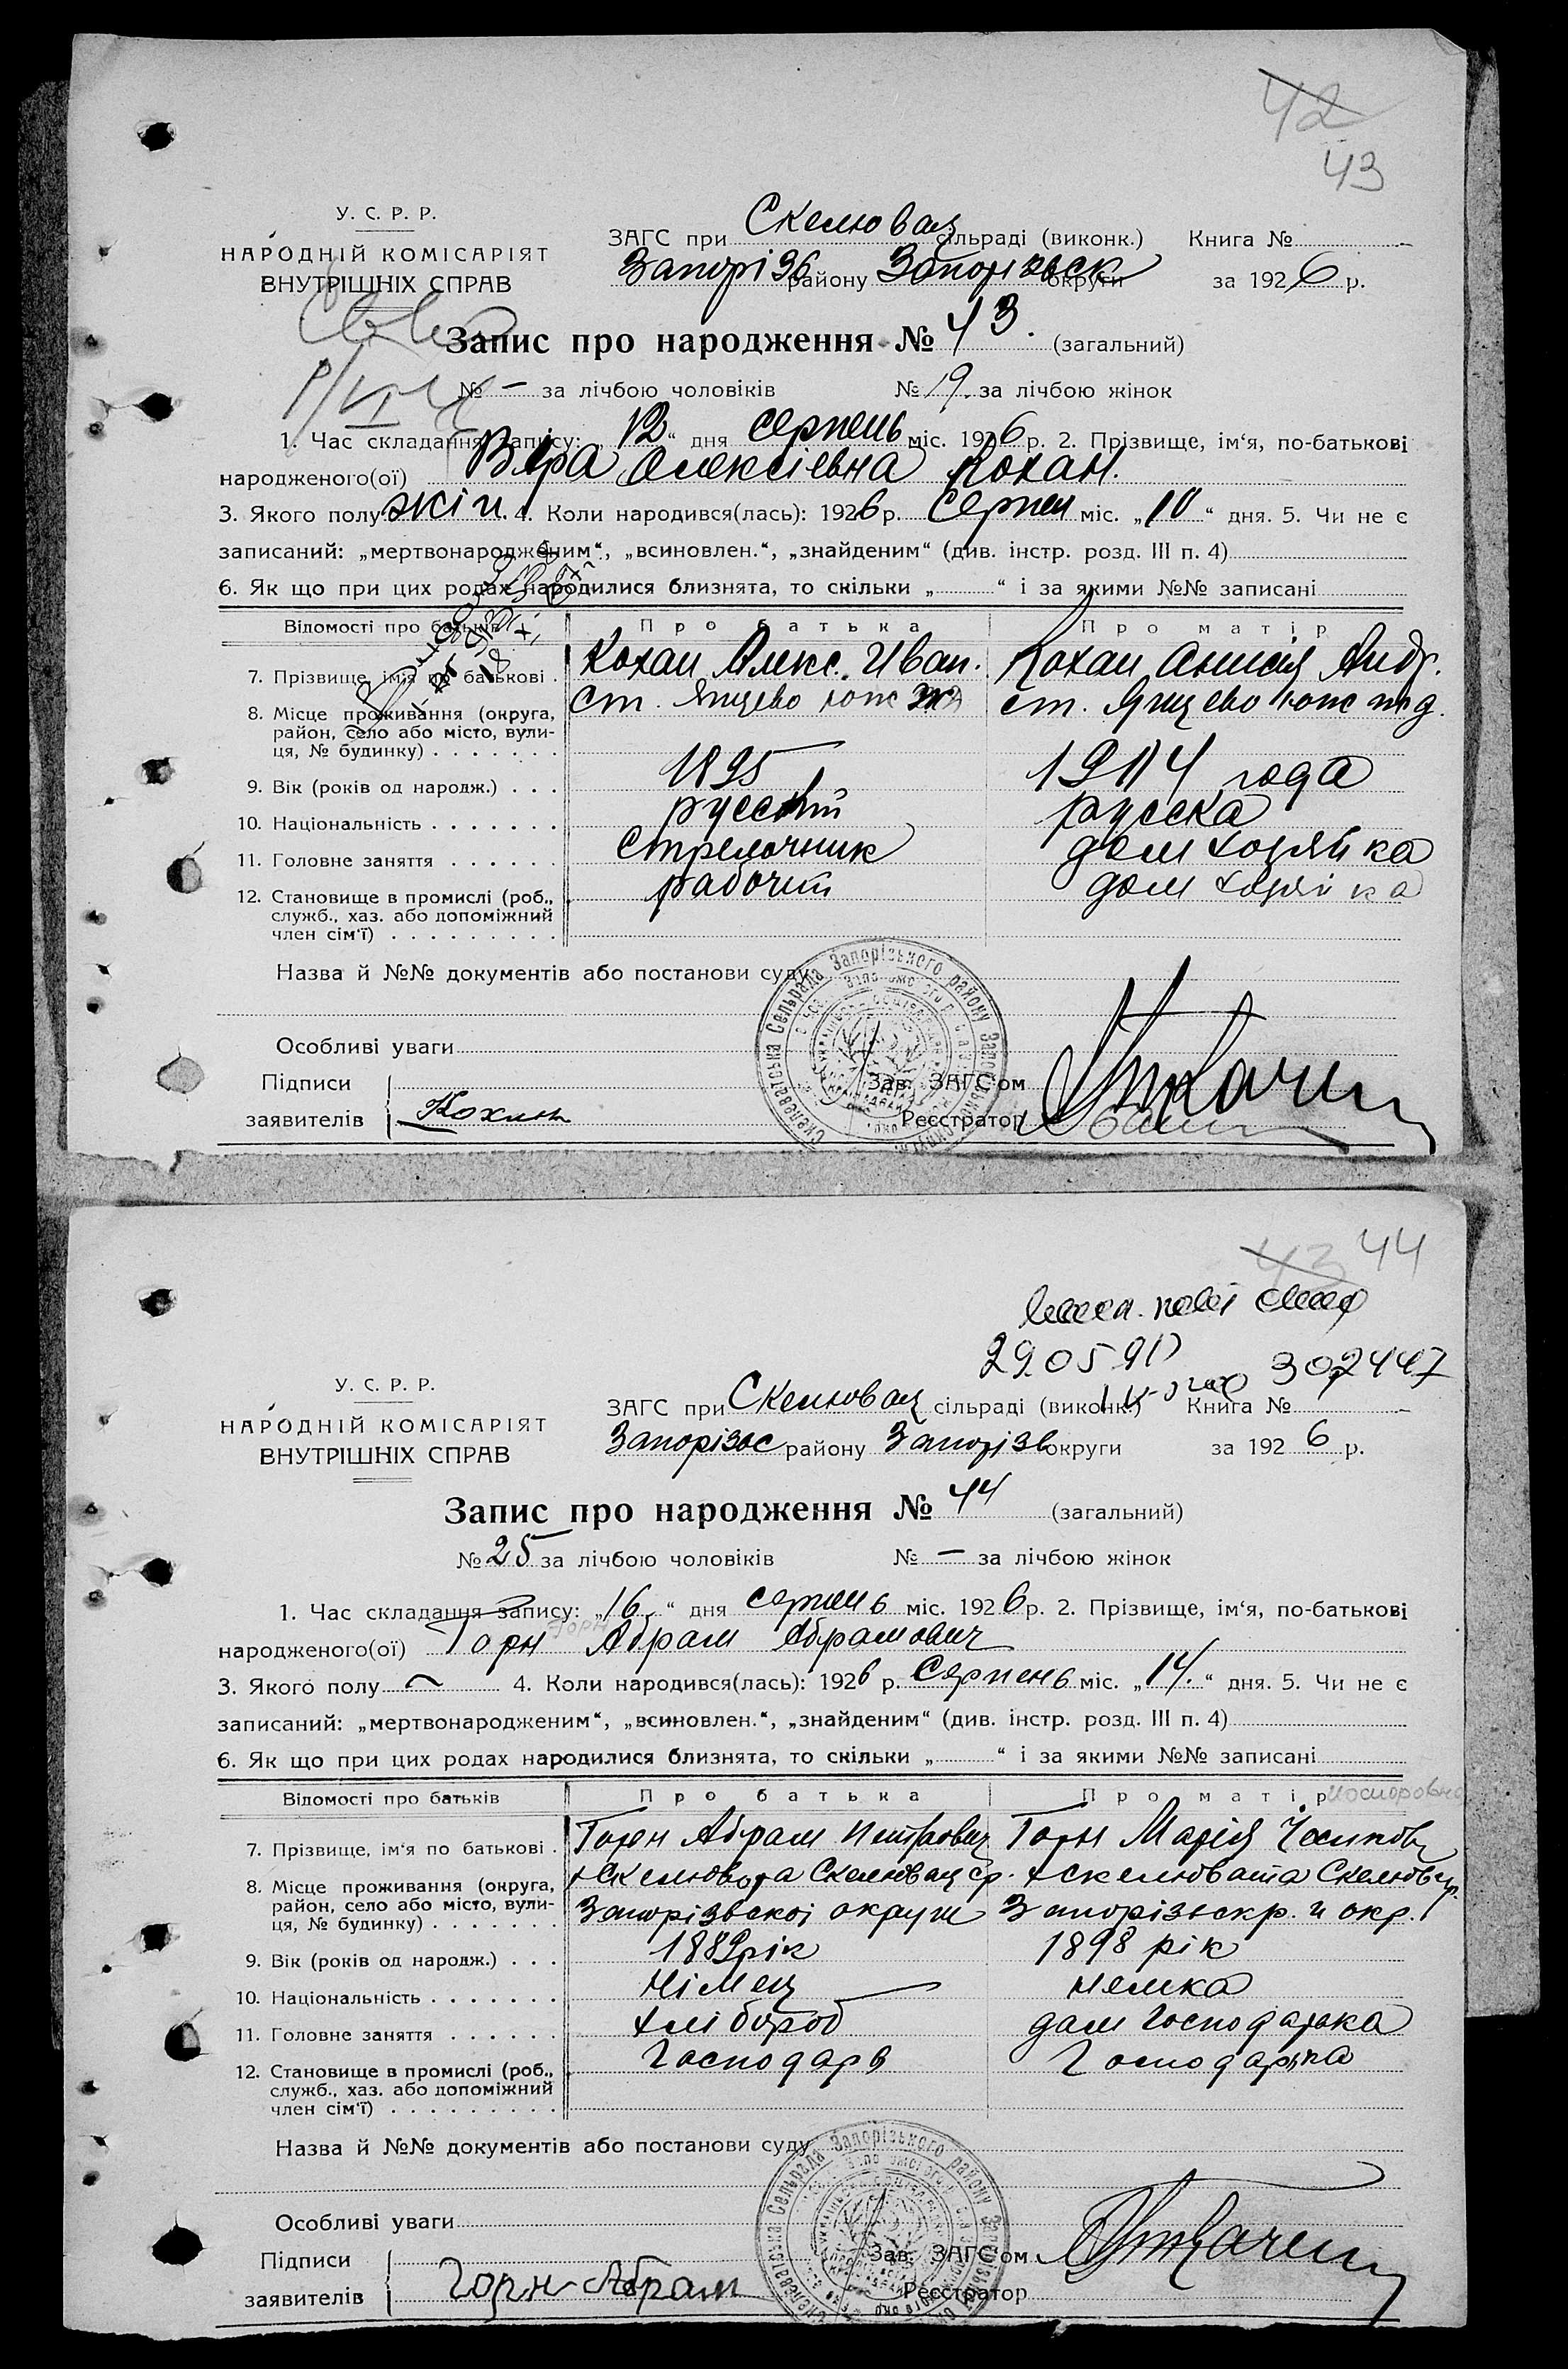 42
43
У. С. Р. Р.
НАРОДНІЙ КОМІСАРІЯТ
ВНУТРІШНІХ СПРАВ
ЗАГС при Скелювац сільраді (виконк.) Книга №
Запоріз району округи за 1926 р.
Запис про народження № 43. (загальний)
№ — за лічбою чоловіків № 19. за лічбою жінок
1. Час складання запису: „12“ дня серпень міс. 1926 р. 2. Прізвище, ім‘я, по-батькові
народженого(ої) Віра Олексіевна Кохан.
3. Якого полу жін. 4. Коли народився(лась): 1926 р. Серпен міс. „10“ дня. 5. Чи не є
записаний: „мертвонародженим“, „всиновлен.“, „знайденим“ (див. інстр. розд. III п. 4)
6. Як що при цих родах народилися близнята, то скільки „ “ і за якими №№ записані
Відомості про батьків Про батька Про матір
7. Прізвище, ім‘я по батькові . Кохан Алекс. Иван. Кохан Анисія Андр.
8. Місце проживання (округа, ст. Янцево ст. Янцево
район, село або місто, вули-
ця, № будинку)
9. Вік (років од народж.) . . . 1895 1904 года
10. Національність русский русска
11. Головне заняття стрелочник дом хозяйка
12. Становище в промислі (роб., рабочий дом хозяйка
служб., хаз. або допоміжний
член сім‘ї)
Назва й №№ документів або постанови суду
Особливі уваги
Підписи
заявителів Кохан
Зав. ЗАГС‘ом
Реєстратор
Скелеватська Сельрада Запорізького району
43 44
29.05.91 302447
У. С. Р. Р.
НАРОДНІЙ КОМІСАРІЯТ
ВНУТРІШНІХ СПРАВ
ЗАГС при Скелювац сільраді (виконк.) Книга №
Запорізьс району Запорізь округи за 1926 р.
Запис про народження № 44 (загальний)
№ 25 за лічбою чоловіків № — за лічбою жінок
1. Час складання запису: „16“ дня серпень міс. 1926 р. 2. Прізвище, ім‘я, по-батькові
Горн
народженого(ої) Горн Абрам Абрамович
3. Якого полу 4. Коли народився(лась): 1926 р. Серпень міс. „14.“ дня. 5. Чи не є
записаний: „мертвонародженим“, „всиновлен.“, „знайденим“ (див. інстр. розд. III п. 4)
6. Як що при цих родах народилися близнята, то скільки „ “ і за якими №№ записані
Відомості про батьків Про батька Про матір
7. Прізвище, ім‘я по батькові . Горн Абрам Петрович Горн Марія
8. Місце проживання (округа, х Скелювата Скелювац ср. х Скелювата Скелюв ср.
район, село або місто, вули- Запорізвскоі округи Запорізьск р. и окр.
ця, № будинку)
9. Вік (років од народж.) . . . 1889 рік 1898 рік
10. Національність німец немка
11. Головне заняття хлібороб дом господарька
12. Становище в промислі (роб., господарь господарька
служб., хаз. або допоміжний
член сім‘ї)
Назва й №№ документів або постанови суду
Особливі уваги
Підписи
заявителів Горн Абрам
Зав. ЗАГС‘ом
Реєстратор
Скелеватська Сельрада Запорізького району